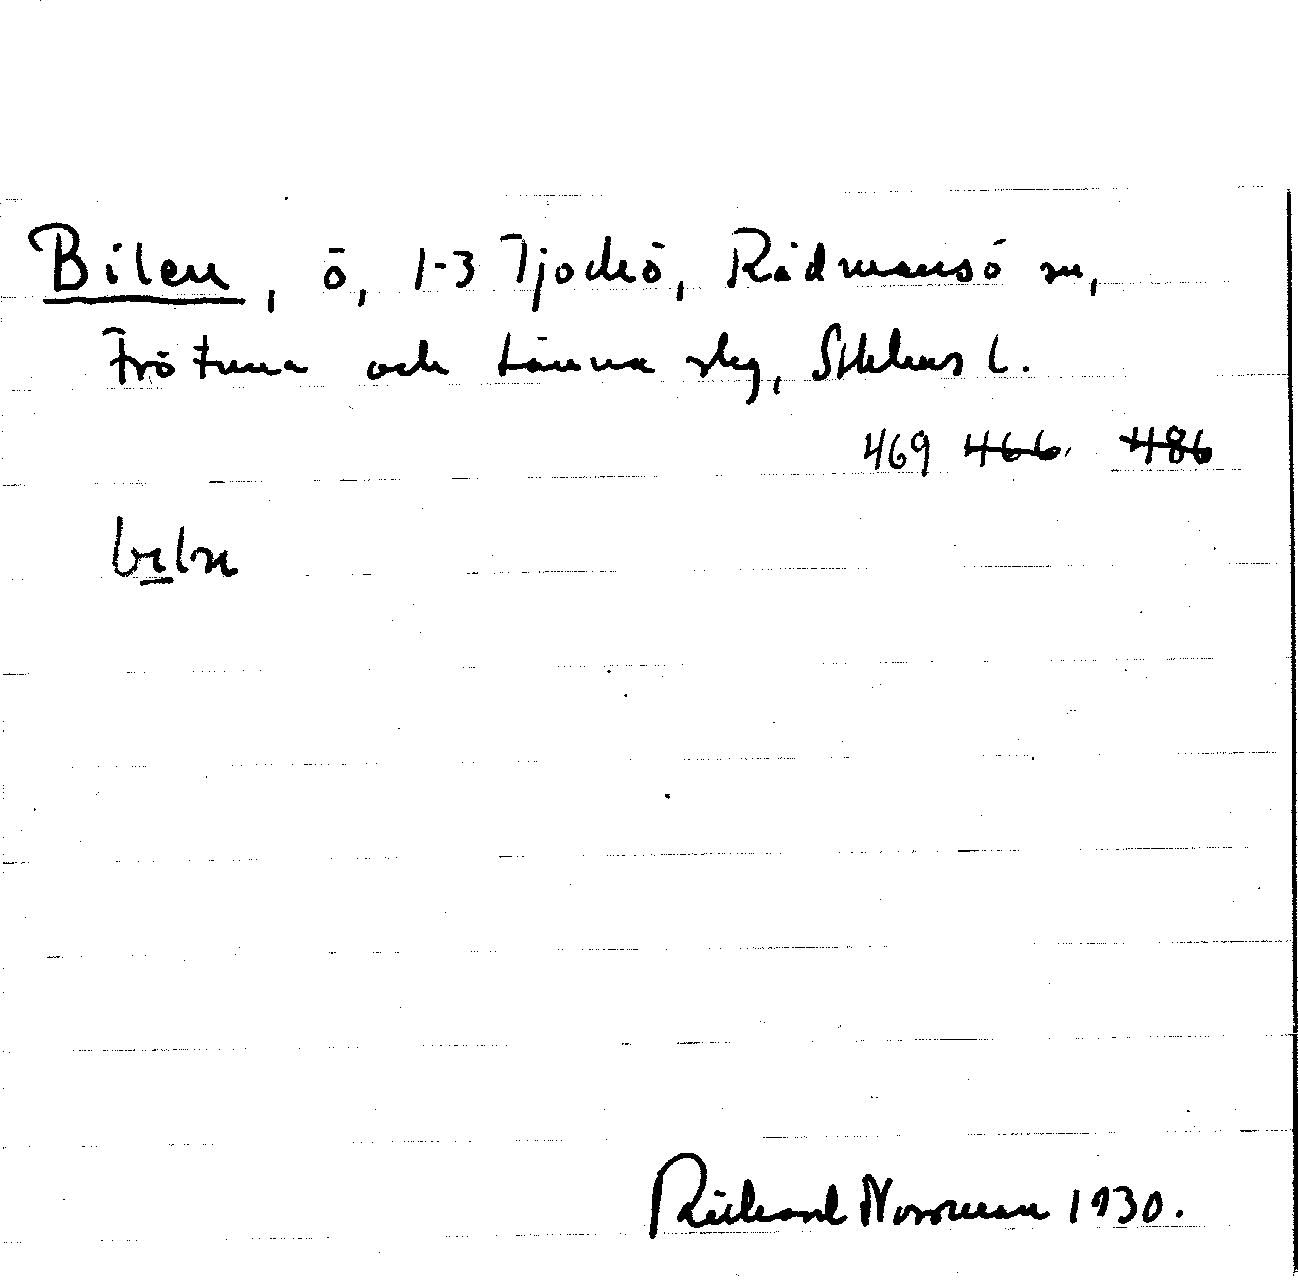 Bilen, ö, 1-3 Tjockö, Rådmansö sn,
Frötuna och Länna skg, Sthlms l.
469 466 486
Rickard Norrman 1930.